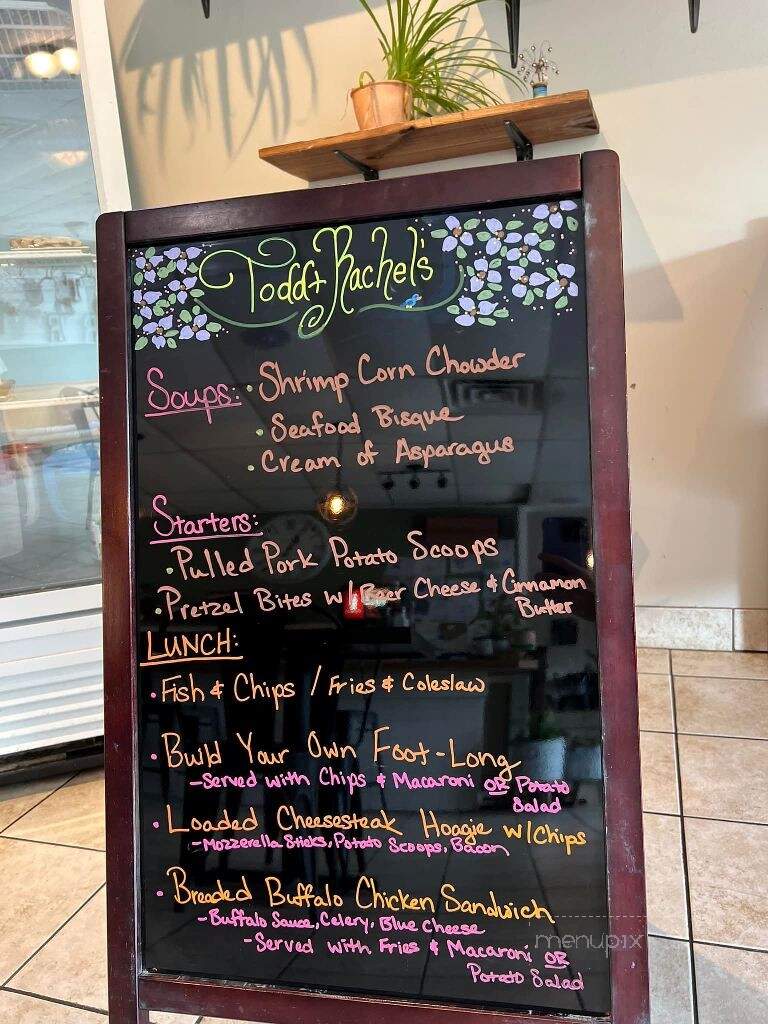 Todd + Rachel's
Soups: • Shrimp Corn Chowder
• Seafood Bisque
• Cream of Asparagus
Starters:
• Pulled Pork Potato Scoops
• Pretzel Bites w/ Beer Cheese & Cinnamon
Butter
LUNCH:
• Fish & Chips / Fries & Coleslaw
• Build Your Own Foot-Long
- Served with Chips & Macaroni OR Potato
Salad
• Loaded Cheesesteak Hoagie w/Chips
- Mozzerella Sticks, Potato Scoops, Bacon
• Breaded Buffalo Chicken Sandwich
- Buffalo Sauce, Celery, Blue Cheese
- Served with Fries & Macaroni OR
Potato Salad
menupix